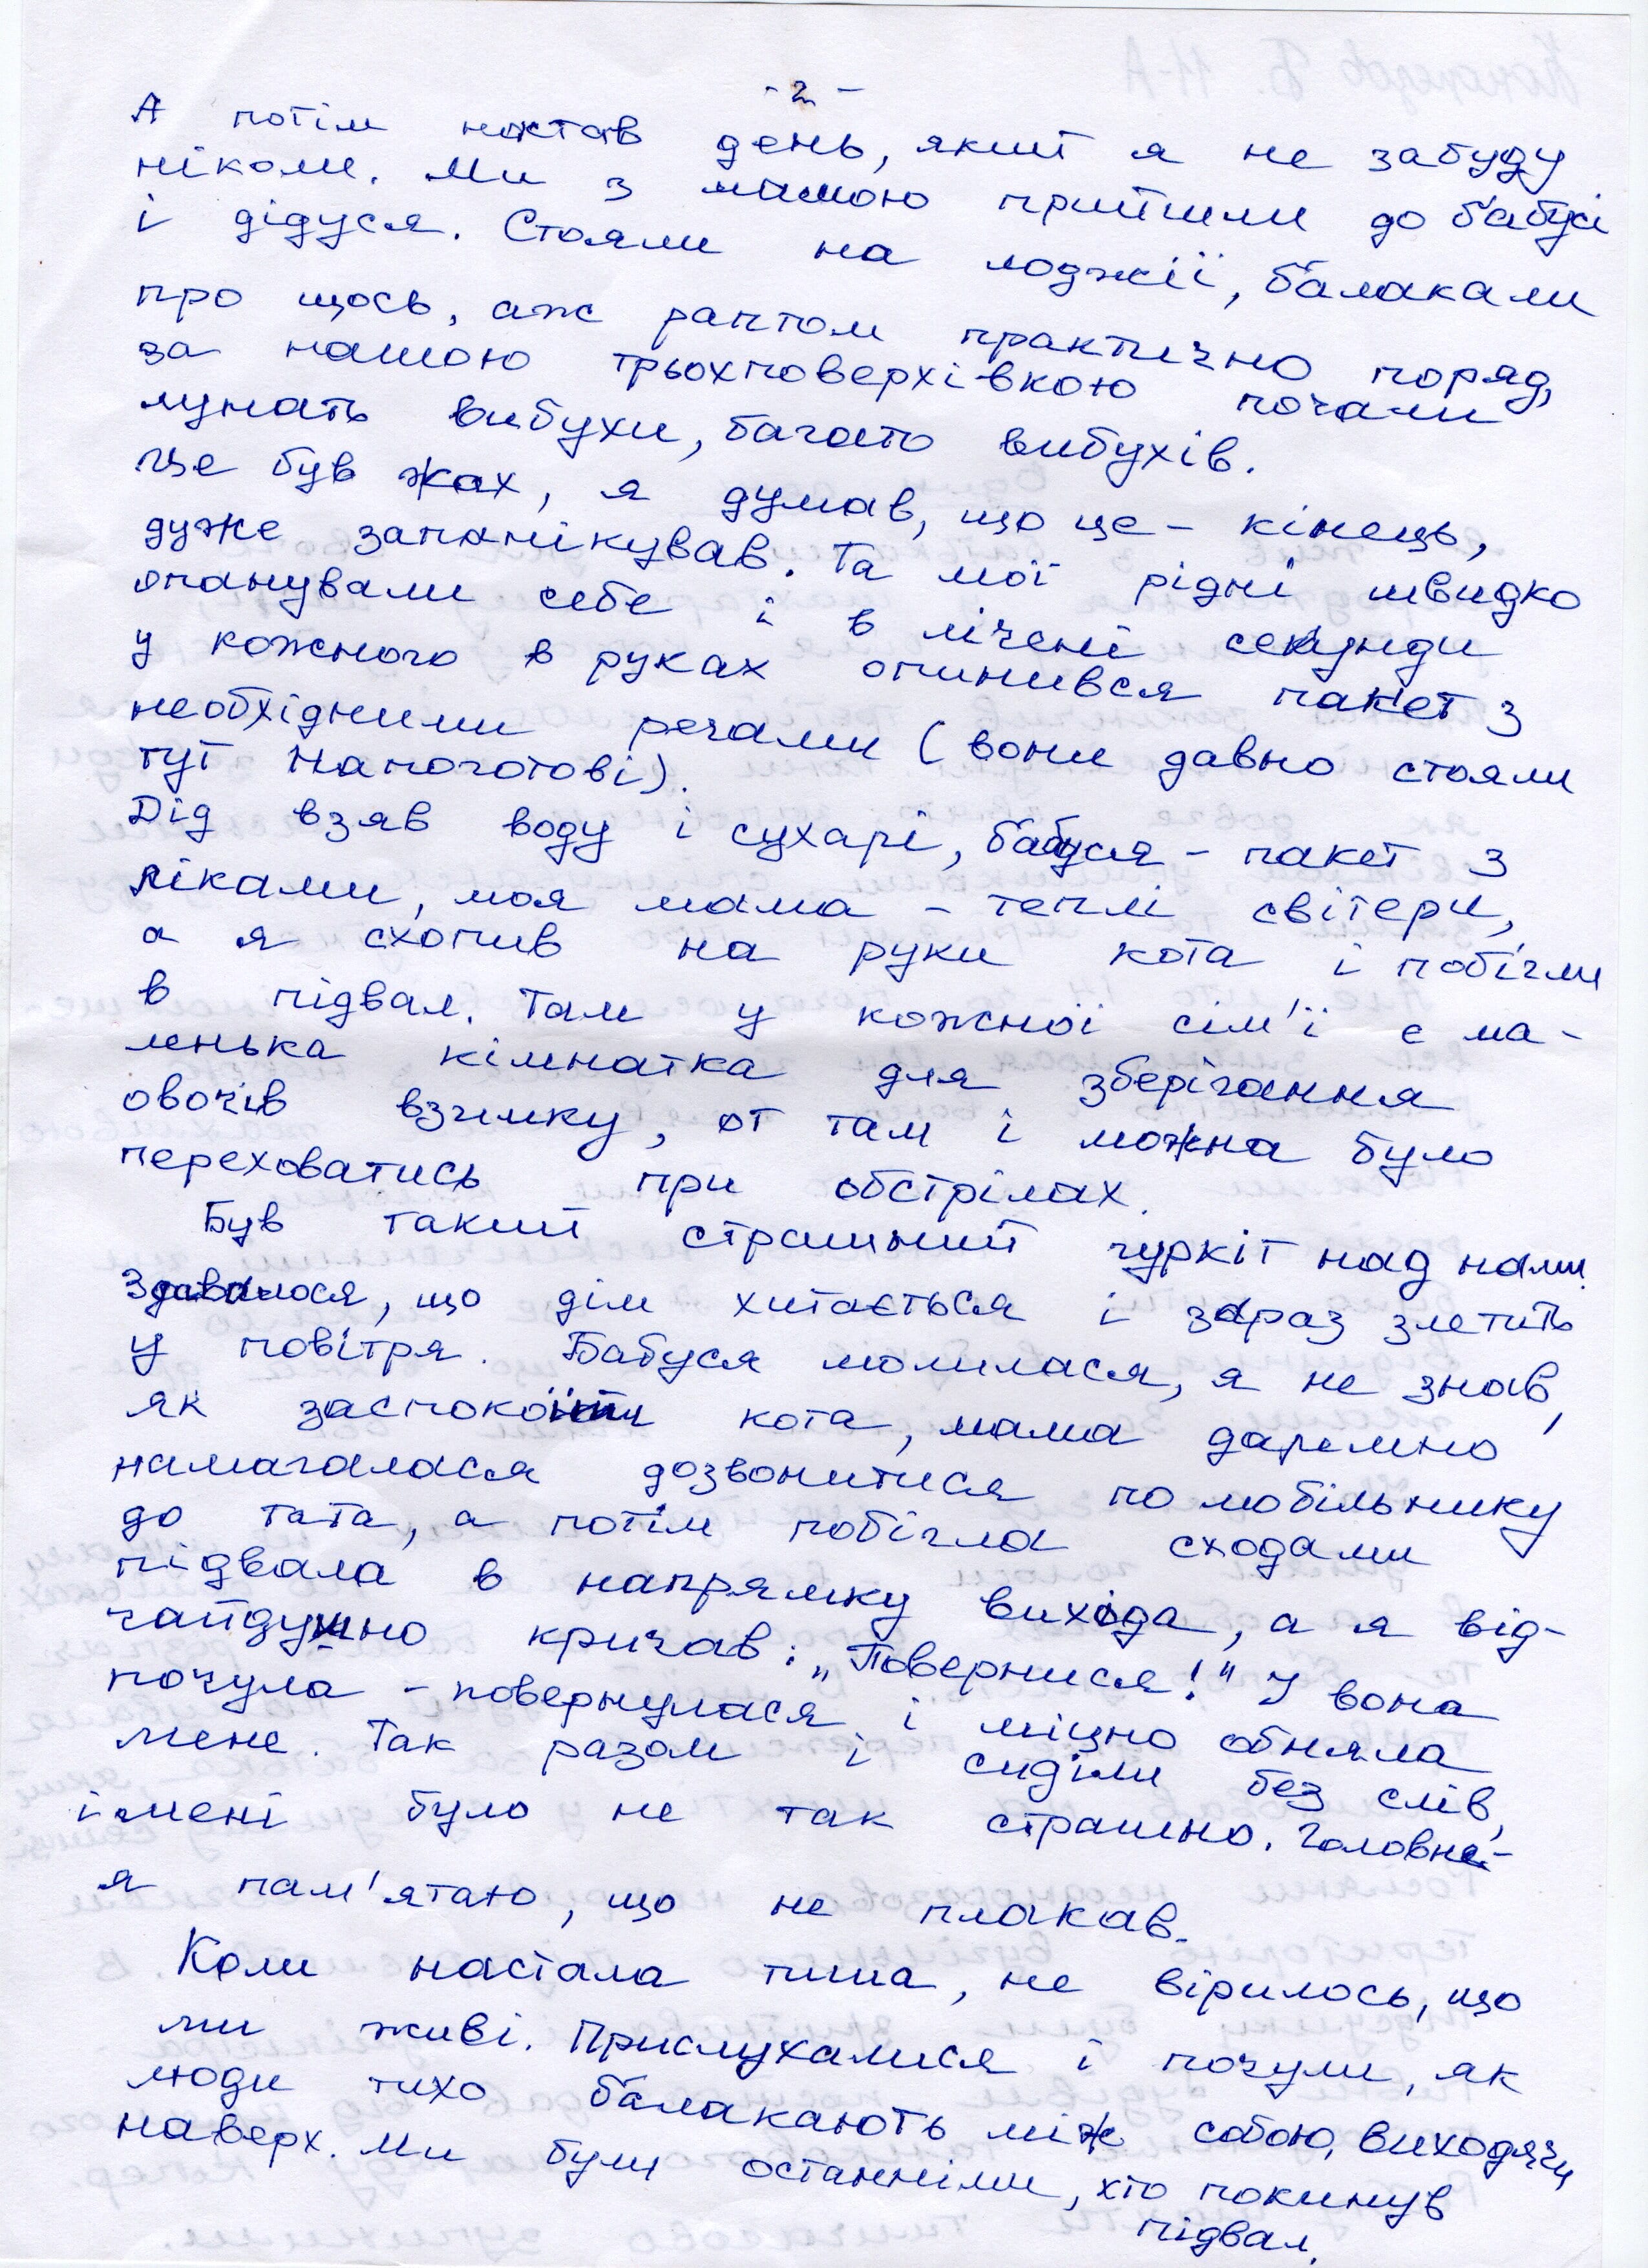 - 2 -
А потім настав день, який я не забуду
ніколи. Ми з мамою прийшли до бабусі
і дідуся. Стояли на лоджії, балакали
про щось, аж раптом практично поряд,
за нашою трьохповерхівкою почали
лунать вибухи, багато вибухів.
Це був жах, я думав, що це - кінець,
дуже запанікував. Та мої рідні швидко
опанували себе і в лічені секунди
у кожного в руках опинився пакет з
необхідними речами (вони давно стояли
тут напоготові).
Дід взяв воду і сухарі, бабуся - пакет з
ліками, моя мама - теплі світери,
а я схопив на руки кота і побігли
в підвал. Там у кожної сім'ї є ма-
ленька кімнатка для зберігання
овочів взимку, от там і можна було
переховатись при обстрілах.
Був такий страшний гуркіт над нами.
Здавалося, що дім хитається і зараз злетить
у повітря. Бабуся молилася, я не знав,
як заспокоїти кота, мама даремно
намагалася дозвонитися по мобільнику
до тата, а потім побігла сходами
підвала в напрямку вихода, а я від-
чайдушно кричав: „Повернися!" І вона
почула - повернулася і міцно обняла
мене. Так разом і сиділи без слів,
і мені було не так страшно. Головне -
я пам'ятаю, що не плакав.
Коли настала тиша, не вірилось, що
ми живі. Прислухалися і почули, як
люди тихо балакають між собою, виходячи
наверх. Ми були останніми, хто покинув
підвал.